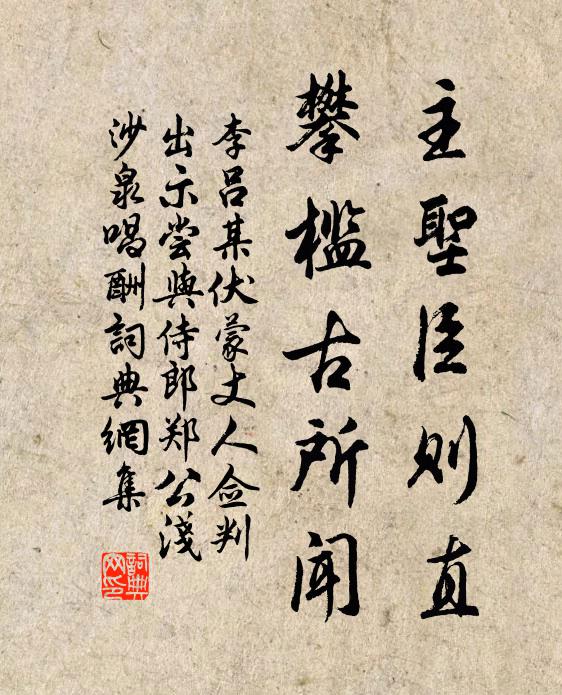 主聖臣則直
攀檻古所聞
李呂某伏蒙丈人佥判
出示嘗與侍郎郑公淺
沙泉唱酬詞典網集
詞典
网印